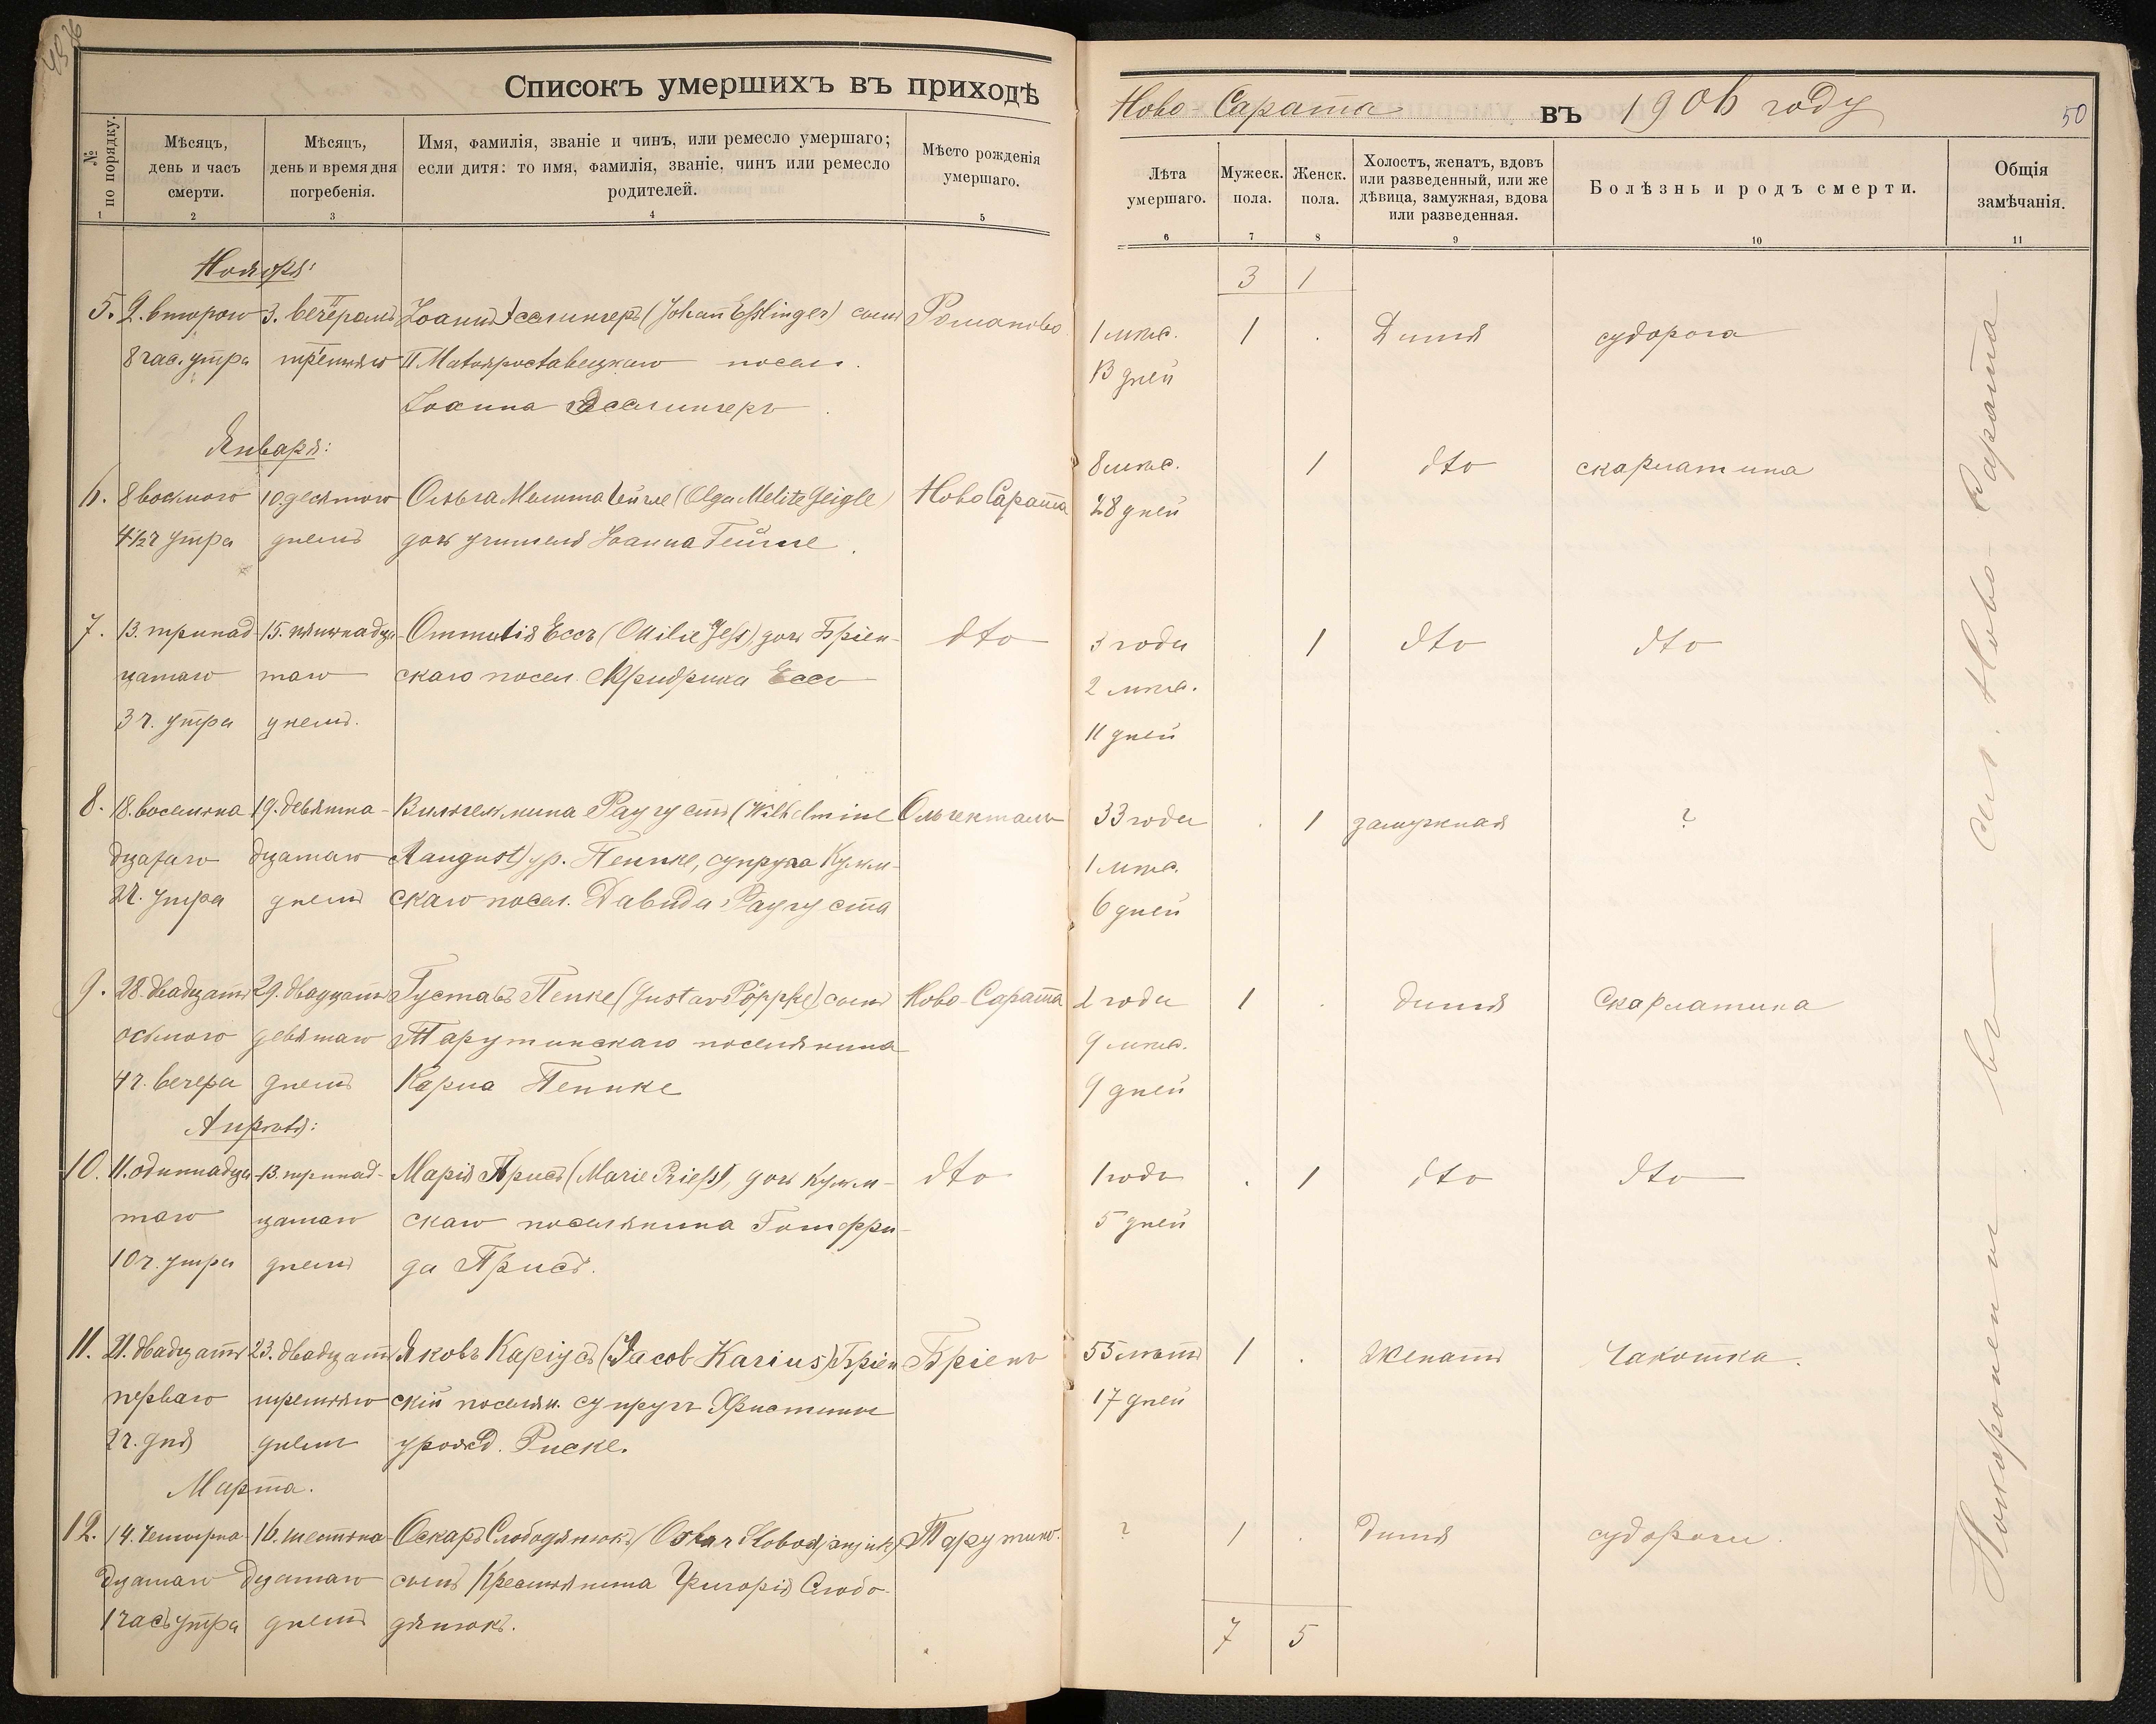 Списокъ умершихъ въ приходѣ
Ново-Сарата въ 1906 году
50
№ по порядку.
Мѣсяцъ,
день и часъ
смерти.
Мѣсяцъ,
день и время дня
погребенія.
Имя, фамилія, званіе и чинъ, или ремесло умершаго;
если дитя: то имя, фамилія, званіе, чинъ или ремесло
родителей.
Мѣсто рожденія
умершаго.
Лѣта
умершаго.
Мужеск.
пола.
Женск.
пола.
Холостъ, женатъ, вдовъ
или разведенный, или же
дѣвица, замужная, вдова
или разведенная.
Болѣзнь и родъ смерти.
Общія
замѣчанія.
1 2 3 4 5 6 7 8 9 10 11
3 1
Ноября:
5. 2. второго 3. вечеромъ Іоаннъ Эсслингеръ (Johan Esslinger) сынъ Романово 1 мѣс. 1 . Дитя судорога
8 час. утра третьяго II Малоярославецкаго посел. 13 дней
Іоанна Эсслингеръ
Января:
6. 8 восьмого 10 десятого Ольга Мелита Гейгле (Olga Melite Geigle) Ново Сарата 8 мѣс. 1 dto скарлатина
4 1/2 ч утра днемъ дочь учителя Іоанна Гейгле. 28 дней
7. 13. тринад- 15. пятнадца- Оттилія Ессъ (Ottilie Jess), дочь Бріен- dto 3 года 1 dto dto
цатаго таго скаго посел. Фридриха Ессъ 2 мѣс.
3 ч. утра днемъ. 11 дней
8. 18. восемна 19. девятна- Вильгельмина Раугустъ (Wilhelmine Ольгенталь 33 года . 1 замужная ?
дцатаго дцатаго Raugust) ур. Пеппке, супруга Кульм- 1 мѣс.
2 ч. утра днемъ скаго посел. Давида Раугуста 6 дней
9. 28. двадцать 29. двадцать Густавъ Пепке (Gustav Pöppke) сынъ Ново-Сарата 2 года 1 . дитя Скарлатина
осьмого девятаго Тарутинскаго поселянина 9 мѣс.
4 ч. вечера днемъ Карла Пеппке 9 дней
Апрѣля:
10. 11. одиннадца- 13. тринад- Марія Присъ (Marie Priess), дочь Кульм- dto 1 годъ . 1 dto dto
таго цатаго скаго поселянина Готфри- 5 дней
10 ч. утра днемъ да Присъ.
11. 21. двадцать 23. двадцать Яковъ Каріусъ (Jacob Karius) Бріен Бріенъ 55 лѣтъ 1 . Женатъ Чахотка.
перваго третьяго скій поселян. супругъ Христины 17 дней
2 ч. дня днемъ урожд. Риске.
Марта.
12. 14. четырна- 16. шестна- Оскаръ Слободянюкъ (Oskar Slobodjanjuk) Тарутино. ? 1 . дитя судороги.
дцатаго дцатаго сынъ Крестьянина Григорія Слобо-
1 часъ утра днемъ дянюкъ.
7 5
Похоронены въ сел. Ново-Сарата